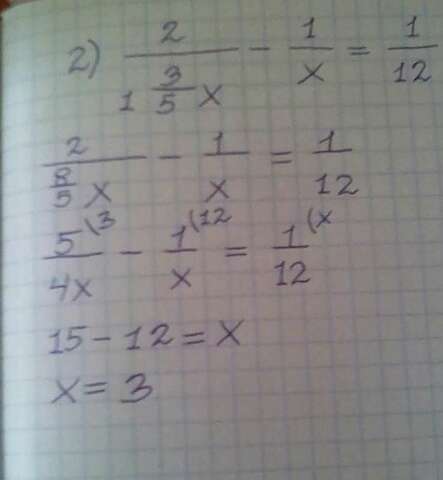 2) 2/(1 3/5 x) - 1/x = 1/12
2/(8/5 x) - 1/x = 1/12
5/4x (3 - 1/x (12 = 1/12 (x
15 - 12 = x
x = 3